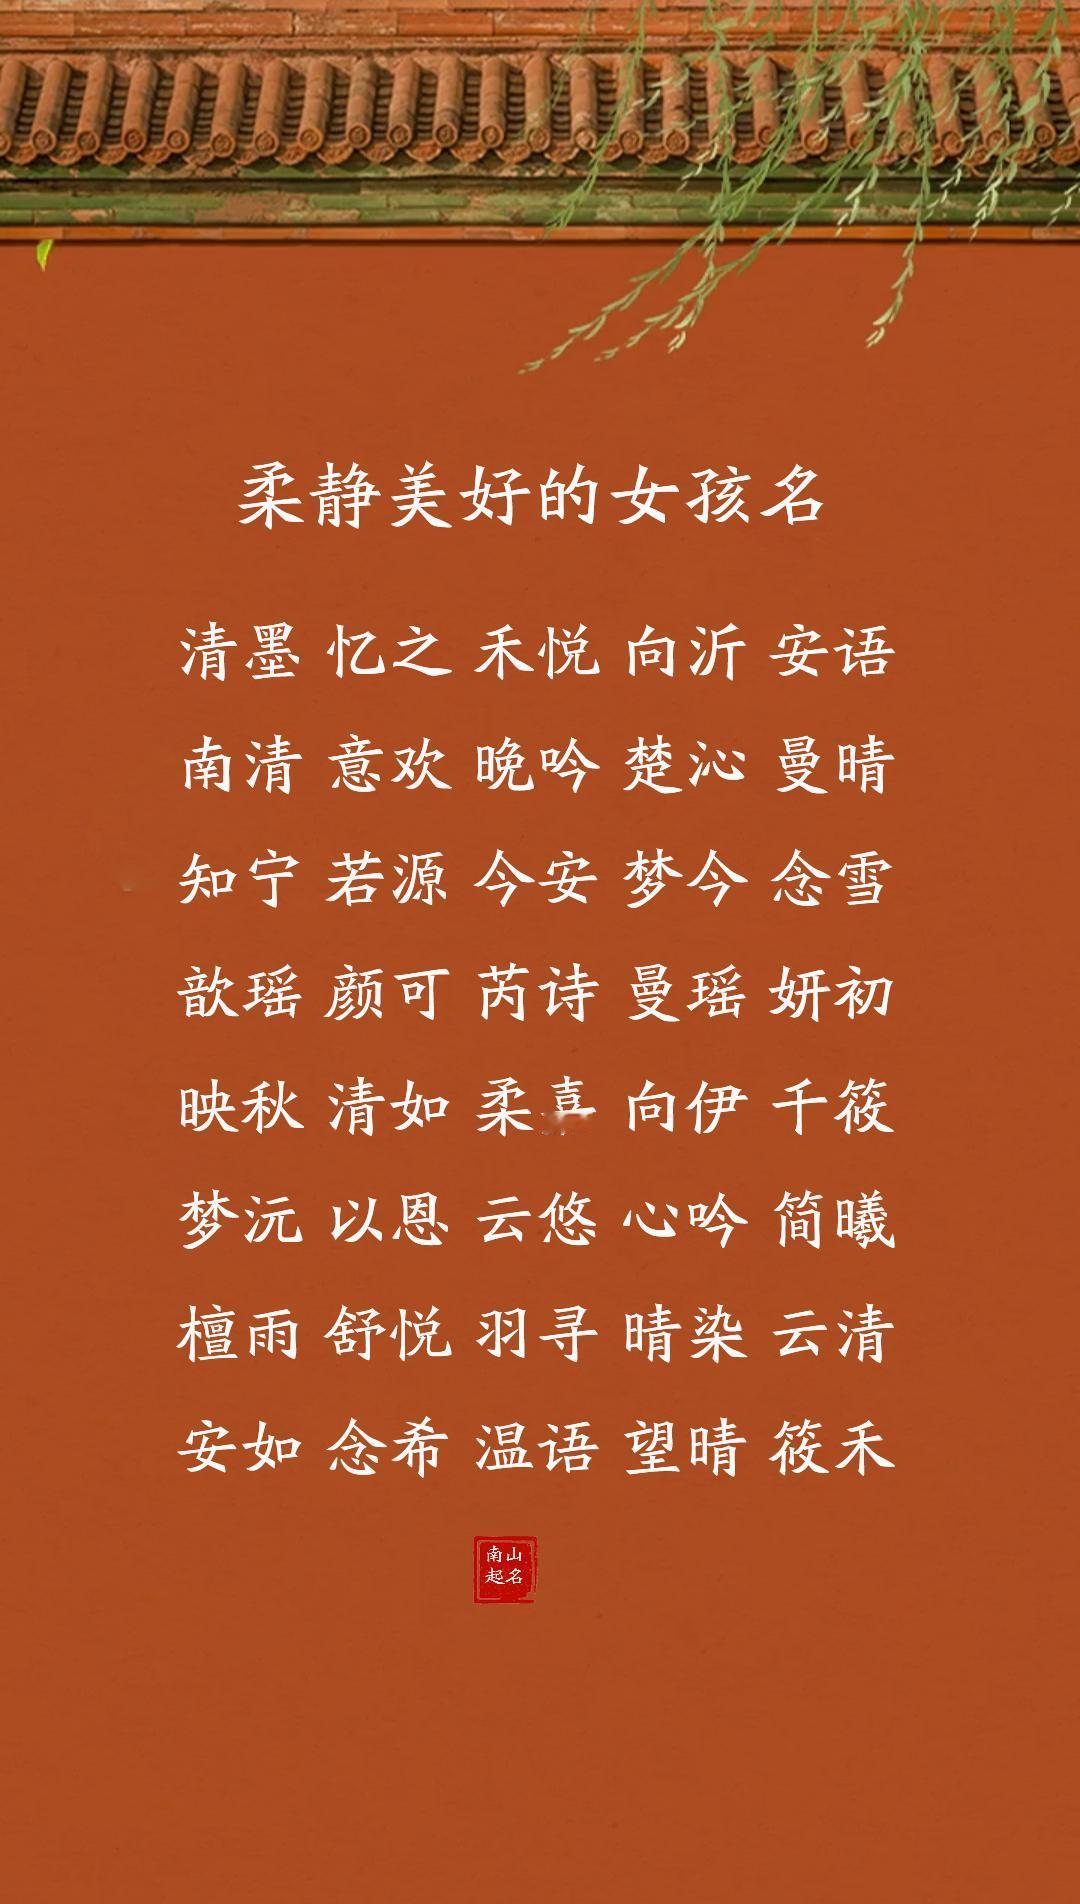 柔静美好的女孩名
清墨 忆之 禾悦 向沂 安语
南清 意欢 晚吟 楚沁 曼晴
知宁 若源 今安 梦今 念雪
歆瑶 颜可 芮诗 曼瑶 妍初
映秋 清如 柔 向伊 千筱
梦沅 以恩 云悠 心吟 简曦
檀雨 舒悦 羽寻 晴染 云清
安如 念希 温语 望晴 筱禾
南山
起名